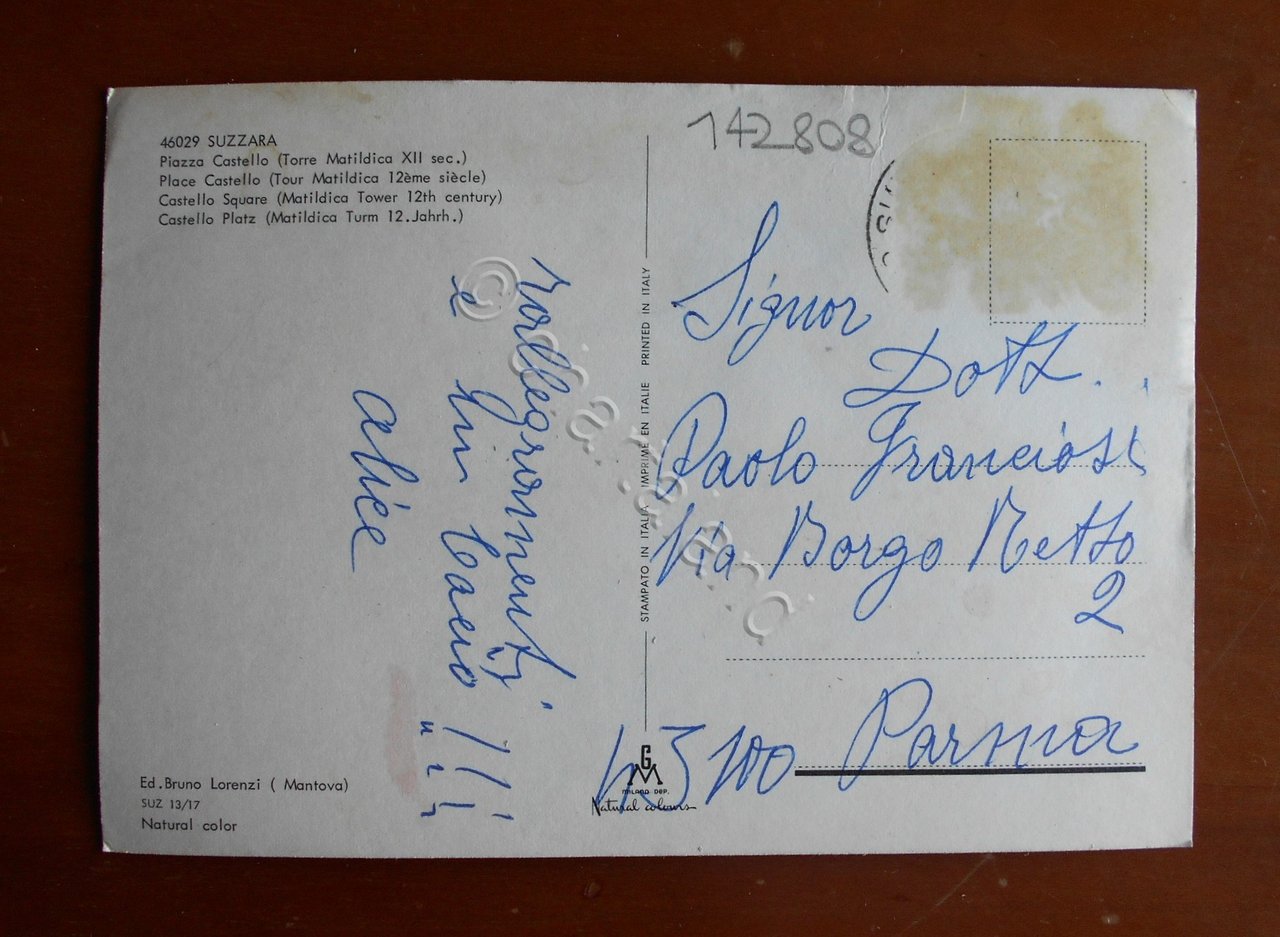 46029 SUZZARA
Piazza Castello (Torre Matildica XII sec.)
Place Castello (Tour Matildica 12ème siècle)
Castello Square (Matildica Tower 12th century)
Castello Platz (Matildica Turm 12.Jahrh.)
rallegramenti
e un bacio !!!
alice
Ed.Bruno Lorenzi ( Mantova)
SUZ 13/17
Natural color
STAMPATO IN ITALIA IMPRIMÉ EN ITALIE PRINTED IN ITALY
GM
MILANO DEP.
Natural colours
142808
Signor
Dott.
Paolo Franciosi
Via Borgo Retto
2
43100 Parma